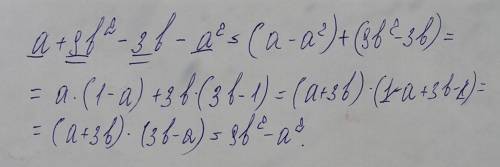 a + 9b² - 3b - a² = (a - a²) + (9b² - 3b) =
= a · (1 - a) + 3b · (3b - 1) = (a + 3b) · (1 - a + 3b - 1) =
= (a + 3b) · (3b - a) = 9b² - a².